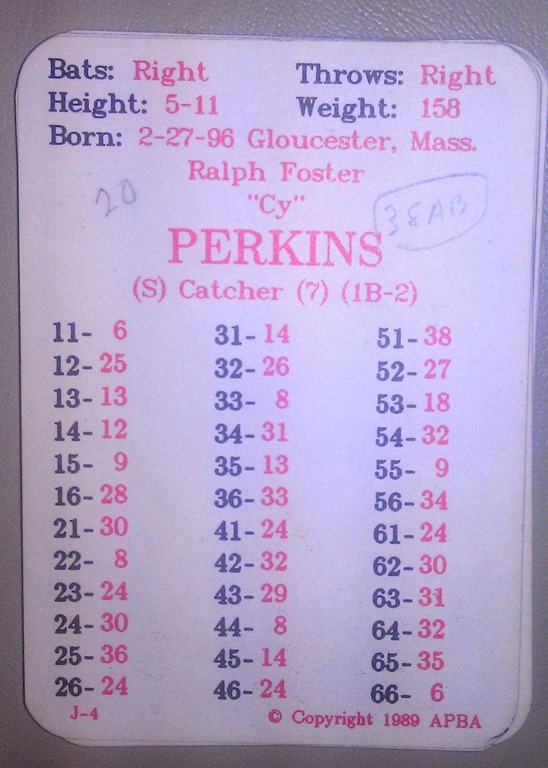 Bats: Right Throws: Right
Height: 5-11 Weight: 158
Born: 2-27-96 Gloucester, Mass.
Ralph Foster
20
"Cy"
38AB
PERKINS
(S) Catcher (7) (1B-2)
11- 6 31- 14 51- 38
12- 25 32- 26 52- 27
13- 13 33- 8 53- 18
14- 12 34- 31 54- 32
15- 9 35- 13 55- 9
16- 28 36- 33 56- 34
21- 30 41- 24 61- 24
22- 8 42- 32 62- 30
23- 24 43- 29 63- 31
24- 30 44- 8 64- 32
25- 36 45- 14 65- 35
26- 24 46- 24 66- 6
J-4 © Copyright 1989 APBA